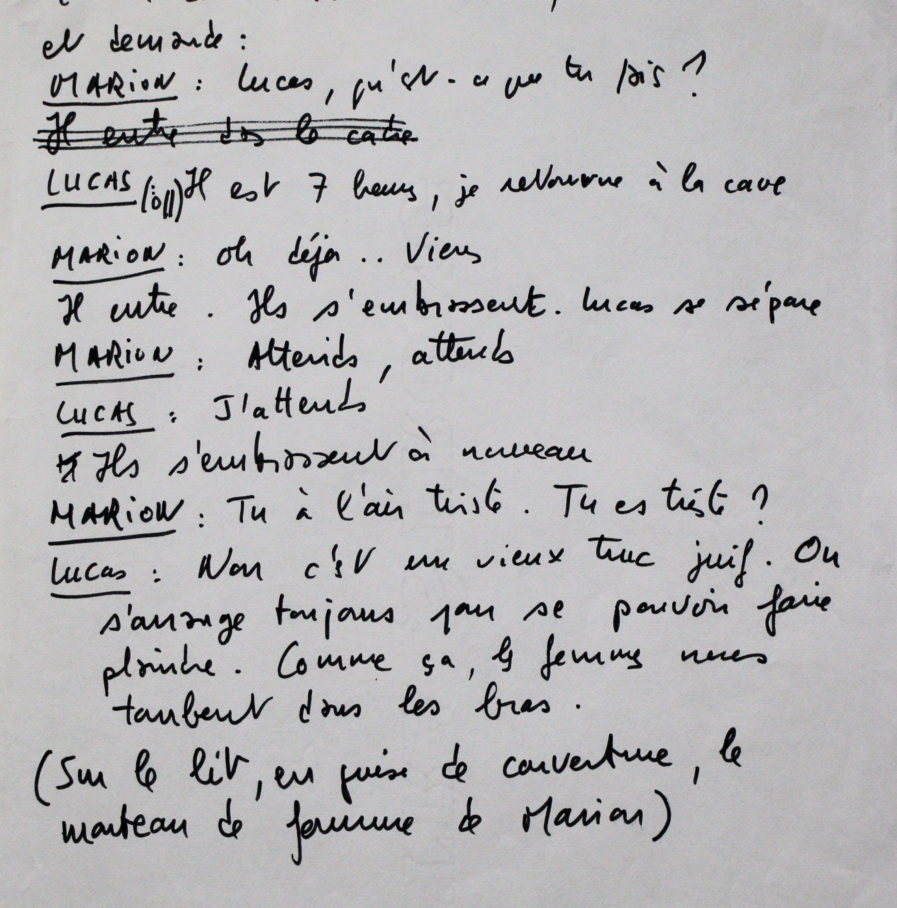 et demande :
MARION : Lucas, qu'est-ce que tu fais ?
Il entre dans le cadre
LUCAS (off) Il est 7 heures, je retourne à la cave
MARION : Oh déjà .. Viens
Il entre . Ils s'embrassent. Lucas se sépare
MARION : Attends, attends
LUCAS : J'attends
Ils s'embrassent à nouveau
MARION : Tu à l'air triste. Tu es triste ?
Lucas : Non c'est un vieux truc juif. On
s'arrange toujours pour se pouvoir faire
plaindre. Comme ça, les femmes nous
tombent dans les bras.
(Sur le lit, en guise de couverture, le
manteau de fourrure de Marion)